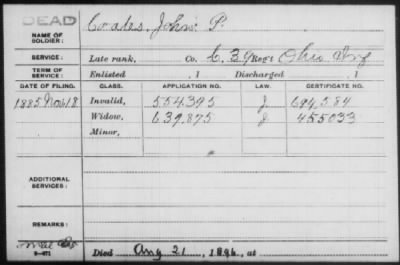 DEAD
NAME OF SOLDIER: Coates, John P.
SERVICE: Late rank, Co. C. 39 Reg't Ohio Inf
TERM OF SERVICE: Enlisted , 1 Discharged , 1
DATE OF FILING. CLASS. APPLICATION NO. LAW. CERTIFICATE NO.
1885 Nov 18 Invalid, 554395 J. 694,584
Widow, 639,875 J. 455033
Minor,
ADDITIONAL SERVICES:
REMARKS:
Died Aug 21, 1896, at